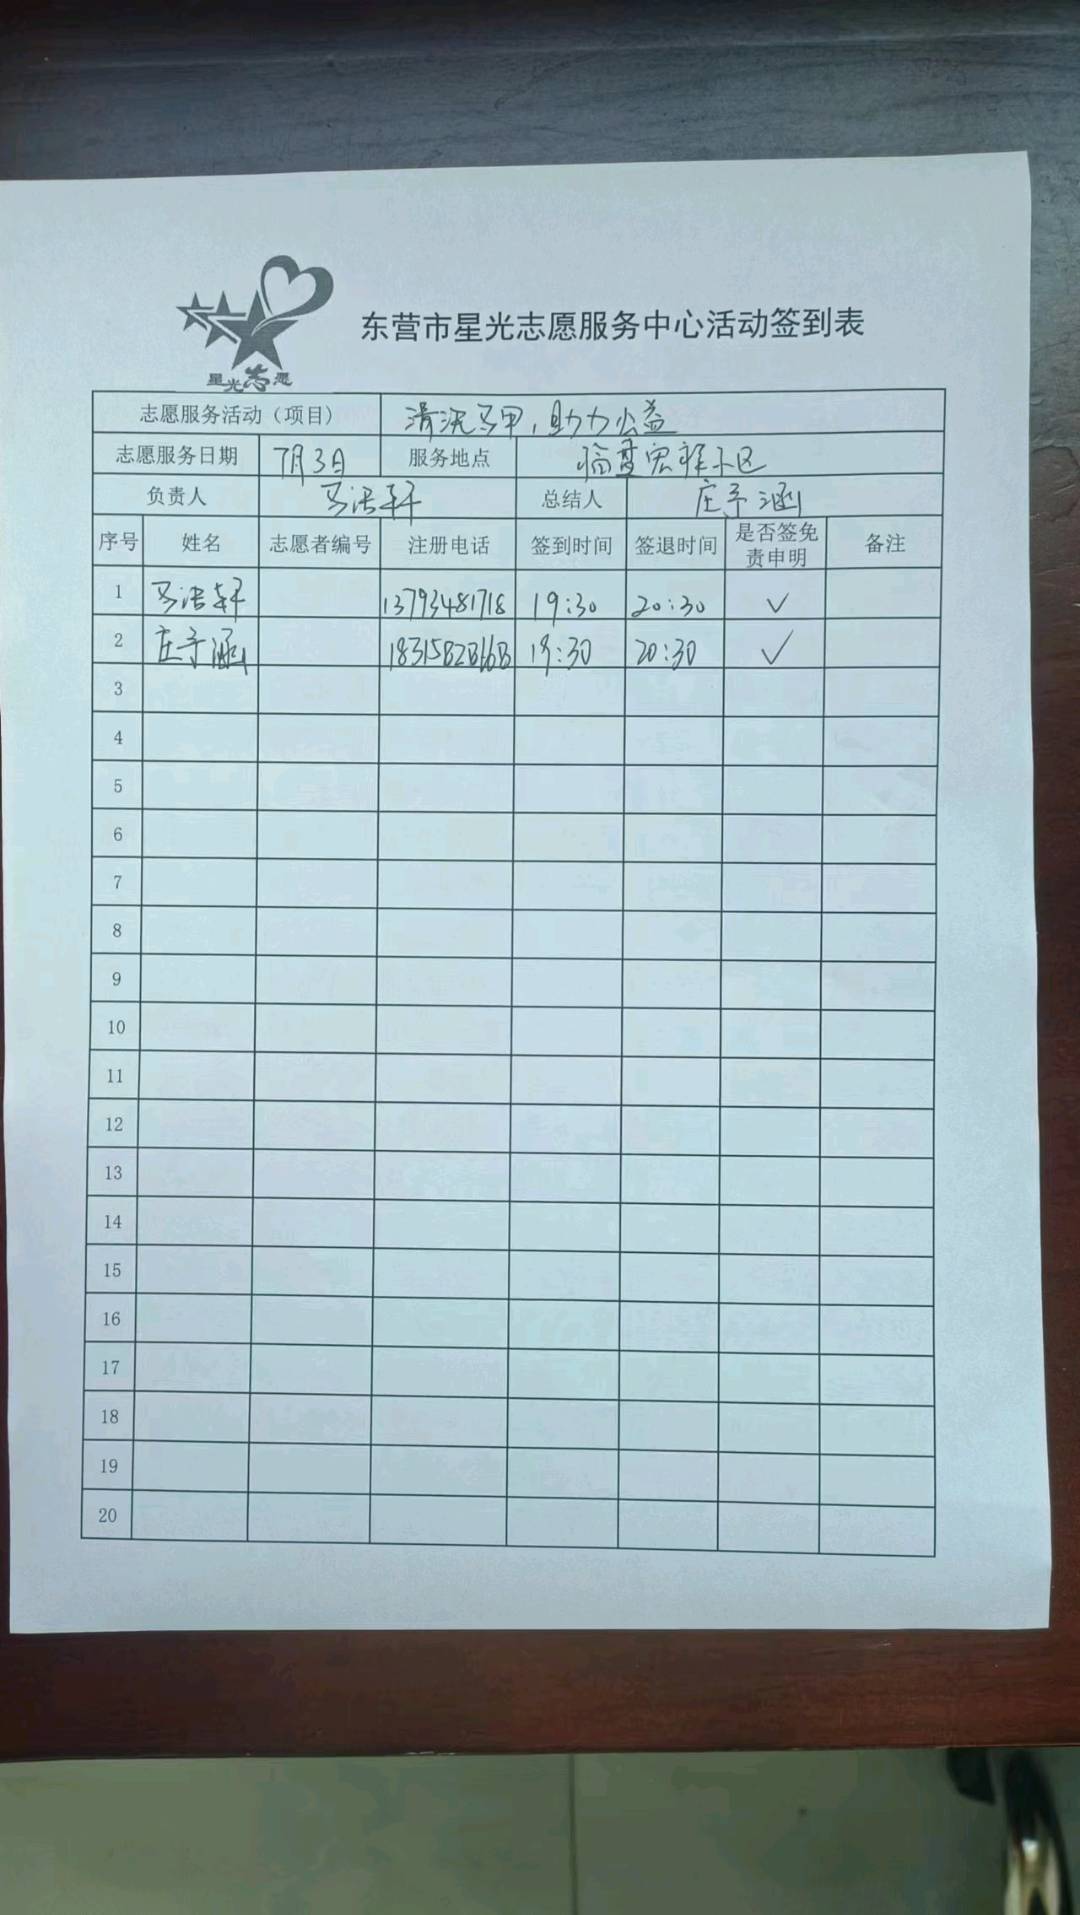 星光志愿
东营市星光志愿服务中心活动签到表
志愿服务活动（项目） 清洗马甲，助力公益
志愿服务日期 7月3日 服务地点 临盘宏雅小区
负责人 马浩轩 总结人 庄予涵
序号 姓名 志愿者编号 注册电话 签到时间 签退时间 是否签免责申明 备注
1 马浩轩 13793481718 19:30 20:30 ✓
2 庄予涵 19:30 20:30 ✓
3
4
5
6
7
8
9
10
11
12
13
14
15
16
17
18
19
20